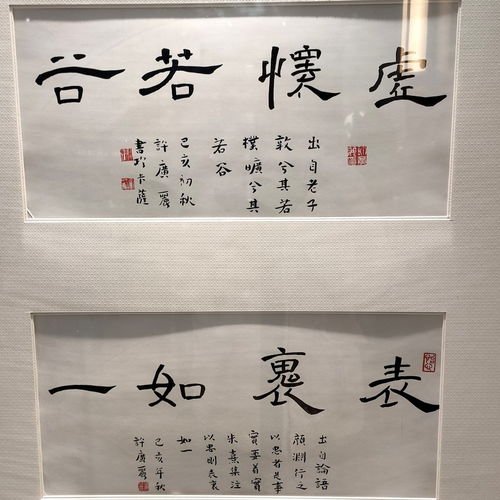 虚懷若谷
出自老子
敦兮其若
樸曠兮其
若谷
己亥初秋
許廣麗
書於卡薩
表裏如一
出自論語
顏淵行之
以忠者是事
實要著實
朱熹集注
以忠則表裏
如一
己亥年秋
許廣麗